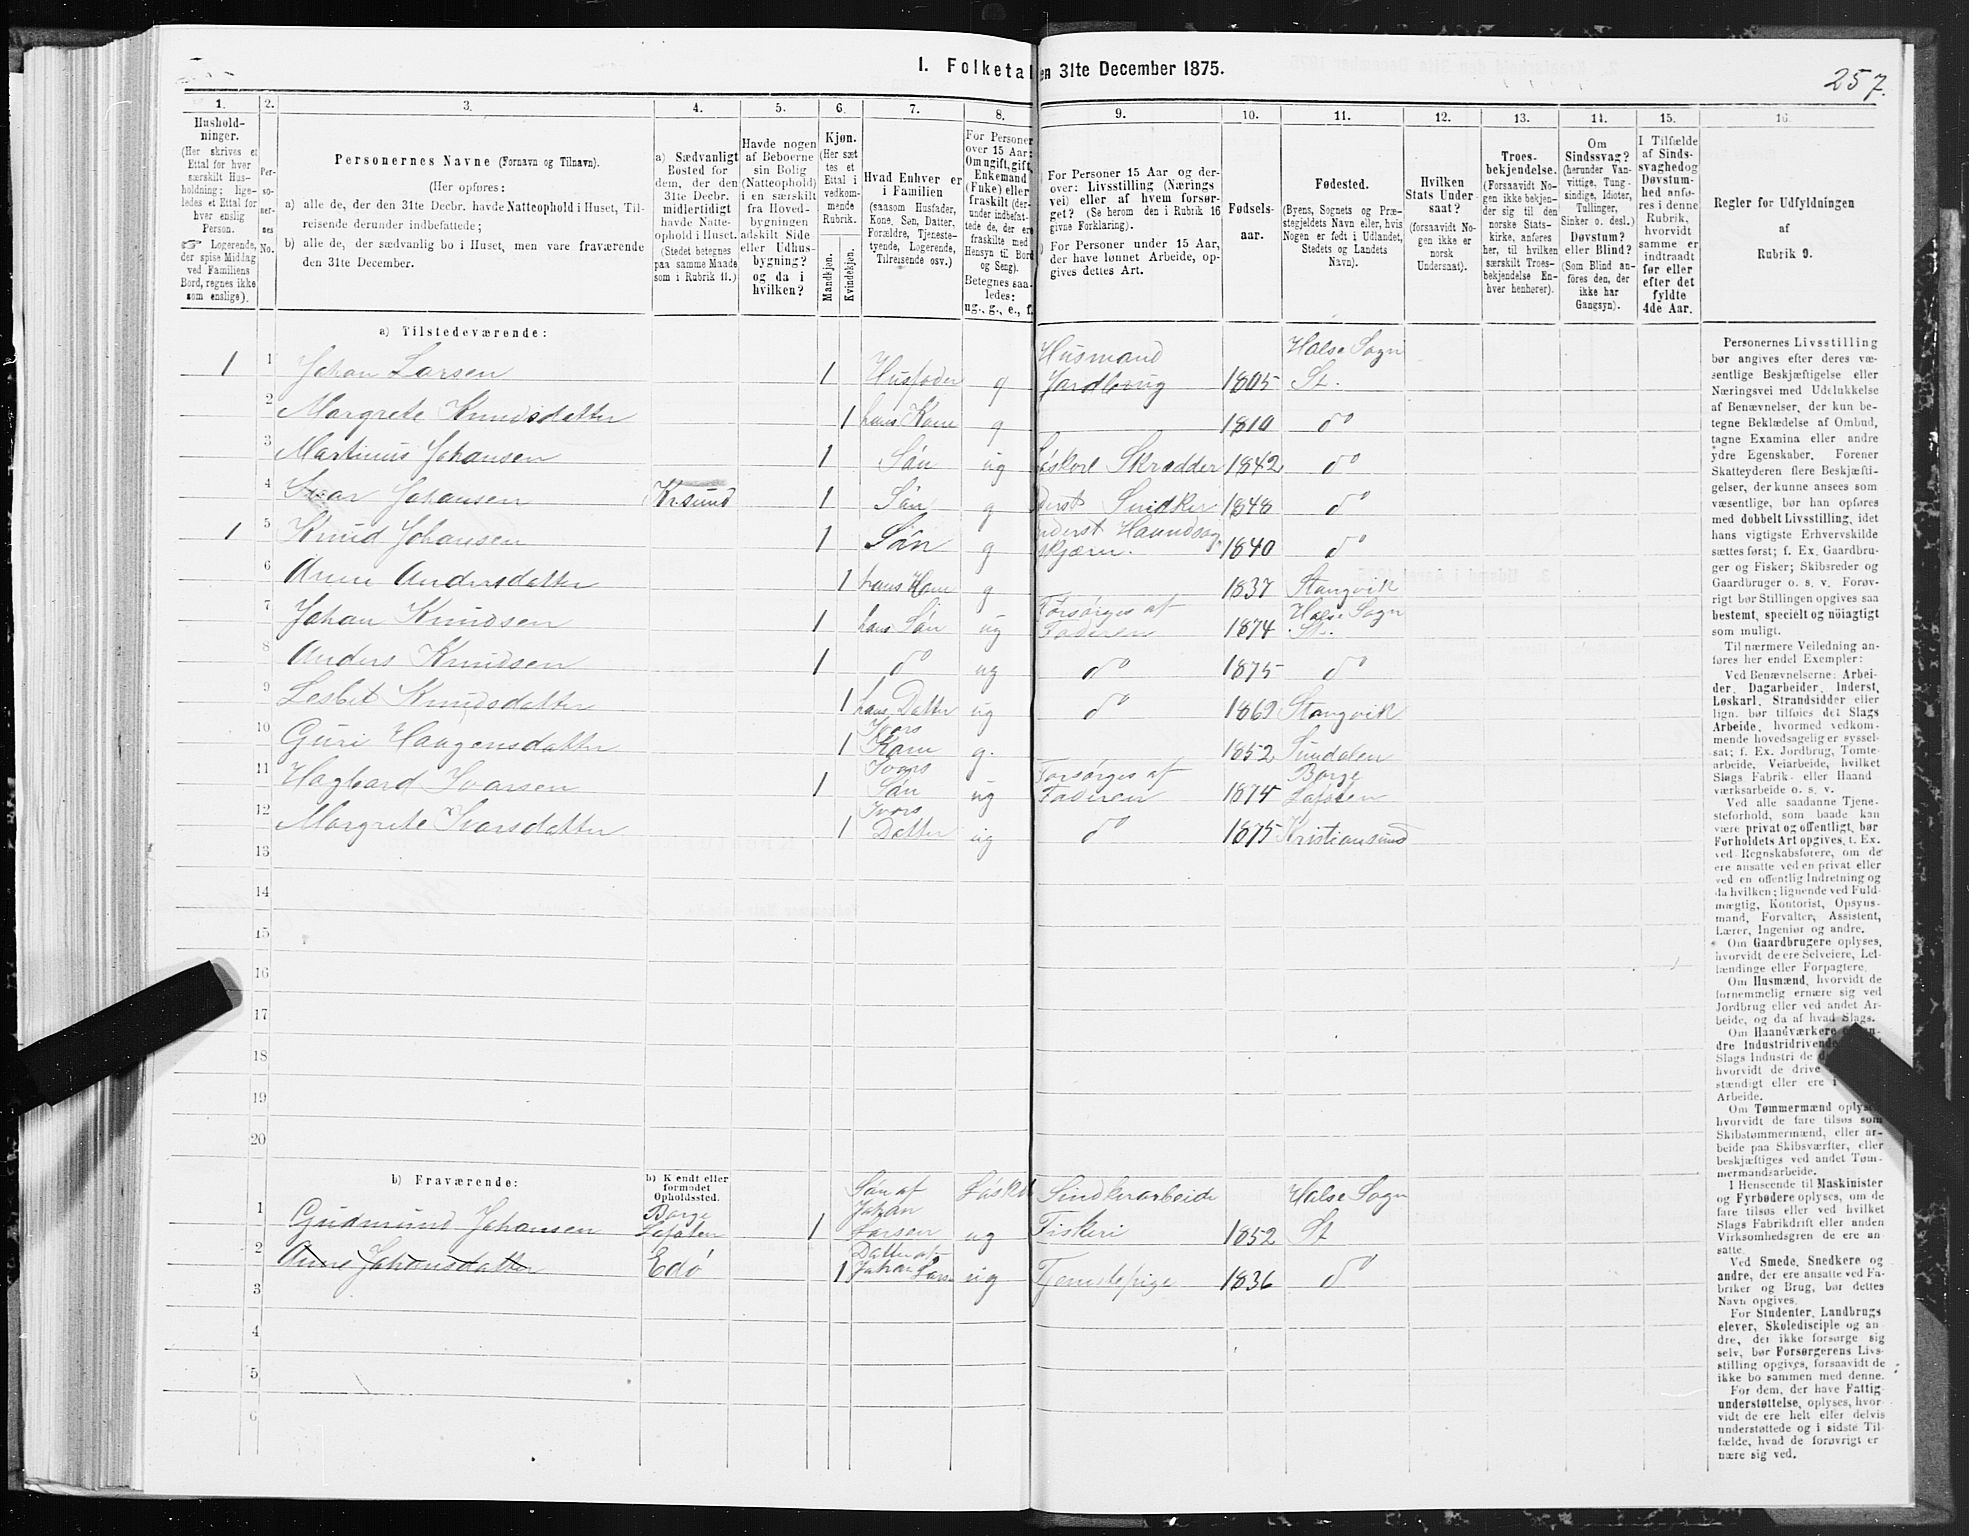 I. Folketal
en 31te December 1875.
257.
1.
2.
3.
4.
5.
6.
7.
8.
9.
10.
11.
12.
13.
14.
15.
16.
Hushold-
ninger.
(Her skrives et
Ettal for hver
særskilt Hus-
holdning; lige-
ledes et Ettal for
hver enslig
Person.
☞ Logerende,
der spise Middag
ved Familiens
Bord, regnes ikke
som enslige).
Per-
so-
ner-
nes
No.
Personernes Navne (Fornavn og Tilnavn).
(Her opføres:
a) alle de, der den 31te Decbr. havde Natteophold i Huset, Til-
reisende derunder indbefattede;
b) alle de, der sædvanlig bo i Huset, men vare fraværende
den 31te December.
a) Sædvanligt
Bosted for
dem, der den
31te Decbr.
midlertidigt
havde Natte-
ophold i Huset.
(Stedet betegnes
paa samme Maade
som i Rubrik 11.)
Havde nogen
af Beboerne
sin Bolig
(Natteophold)
i en særskilt
fra Hoved-
bygningen
adskilt Side
eller Udhus-
bygning?
og da i
hvilken?
Kjøn.
(Her sæt
tes et
Ettal i
vedkom-
mende
Rubrik.
Mandkjøn.
Kvindekjøn.
Hvad Enhver er
i Familien
(saasom Husfader,
Kone, Søn, Datter,
Forældre, Tjeneste-
tyende, Logerende,
Tilreisende osv.)
For Personer
over 15 Aar:
Om ugift, gift,
Enkemand
(Fuke) eller
fraskilt (der-
under indbefat-
tede de, der ere
fraskilte med
Hensyn til Bord
og Seng).
Betegnes saa-
ledes:
ng., g., e., f.
For Personer 15 Aar og der-
over: Livsstilling (Nærings
vei) eller af hvem forsør-
get? (Se herom den i Rubrik 16
givne Forklaring).
) For Personer under 15 Aar,
der have lønnet Arbeide, op-
gives dettes Art.
Fødsels-
aar.
Fødested.
(Byens, Sognets og Præ-
stegjeldets Navn eller, hvis
Nogen er født i Udlandet,
Stedets og Landets
Navn).
Hvilken
Stats Under
saat?
(forsaavidt No-
gen ikke er
norsk
Undersaat).
Troes-
bekjendelse.
(Forsaavidt No-
gen ikke bekjen-
der sig til den
norske Stats-
kirke, anføres
her, til hvilken
særskilt Troes-
bekjendelse En-
hver henhører).
Om
Sindssvag?
(herunder Van-
vittige, Tung-
sindige, Idioter,
Tullinger,
Sinker o. desl.)
Døvstum?
eller Blind?
(Som Blind an-
føres den, der
ikke har
Gangsyn).
I Tilfælde
af Sinds-
svaghed og
Døvstum-
hed anfø-
res i denne
Rubrik,
hvorvidt
samme er
indtraadt
før eller
efter det
fyldte
4de Aar.
Regler for Udfyldningen
af
Rubrik 9.
a) Tilstedeværende:
1 1 Johan Larsen 1 Husfader g Husmand Jordbrug 1805 Halse Sogn St.
2 Margrete Knudsdatter 1 hans Kone g 1810 do
3 Martinus Johansen 1 Søn ug Løskarl Skrædder 1842 do
4 Ivar Johansen Kr.sund 1 Søn g Inderst Snidker 1848 do
1 5 Knud Johansen 1 Søn g Inderst Haandsagskjærer. 1840 do
6 Anne Andersdatter 1 hans Kone g 1837 Stangvik
7 Johan Knudsen 1 hans Søn ug Forsørges af Faderen 1874 Halse Sogn St.
8 Anders Knudsen 1 do ug do 1875 do
9 Lesbet Knudsdatter 1 hans Datter ug do 1869 Stangvik
10 Guri Haagensdatter 1 Ivars Kone g. 1852 Sundalen
11 Hagbard Ivarsen 1 Ivars Søn ug Forsørges af Faderen 1874 Borge Lofoten
12 Margrete Ivarsdatter 1 Ivars Datter ug do 1875 Kristiansund
13
14
15
16
17
18
19
20
b) Fraværende:
b) Kendt eller
formodet
Opholdssted.
1 Gudmund Johansen Borge Lofoten 1 Søn af Johan Larsen ug Løskarl Sindkerarbeide Fiskeri 1852 Halse Sogn St
2 Anne Johansdatter Edø 1 Datter af Johan Lars ug Tjenestepige 1836 do
3
4
5
6
Personernes Livsstilling
bør angives efter deres væ-
sentlige Beskjæftigelse eller
Næringsvei med Udelukkelse
af Benævnelser, der kun be-
tegne Beklædelse af Ombud,
tagne Examina eller andre
ydre Egenskaber. Forener
Skatteyderen flere Beskjæfti-
gelser, der kunne ansees som
væsentlige, bør han opføres
med dobbelt Livsstilling, idet
hans vigtigste Erhvervskilde
sættes først; f. Ex. Gaardbru-
ger og Fisker; Skibsreder og
Gaardbruger o. s. v. Forøv-
rigt bør Stillingen opgives saa
bestemt, specielt og nöiagtigt
som muligt.
Til nærmere Veiledning an-
føres her endel Exempler:
Ved Benævnelserne: Arbei-
der, Dagarbeider, Inderst,
Løskarl, Strandsidder eller
lign. bør tilføies det Slags
Arbeide, hvormed vedkom-
mende hovedsagelig er syssel-
sat; f. Ex. Jordbrug, Tomte-
arbeide, Veiarbeide, hvilket
Slags Fabrik- eller Haand
værksarbeide o. s. v.
Ved alle saadanne Tjene-
steforhold, som baade kan
være privat og offentligt, bør
Forholdets Art opgives, t. Ex.
ved Regnskabsførere, om de
ere ansatte ved en privat eller
ved en offentlig Indretning og
da hvilken; lignende ved Fuld-
mægtig, Kontorist, Opsyns-
mand, Forvalter, Assistent,
Lærer, Ingeniør og andre.
Om Gaardbrugere oplyses,
hvorvidt de ere Selveiere, Lei-
lændinge eller Forpagtere.
Om Husmænd, hvorvidt de
fornemmelig ernære sig ved
Jordbrug eller ved andet Ar-
beide, og da af hvad Slags.
Om Haandværkere
dre Industridrivende
Slags Industri de
hvorvidt de drive
stændigt eller ere i
Arbeide.
Om Tømmermænd oplyses
hvorvidt de fare tilsøs som
Skibstømmermænd, eller ar-
beide paa Skibsværfter, eller
beskjæftiges ved andet Tøm-
mermandsarbeide.
I Henseende til Maskinister
og Fyrbødere oplyses, om de
fare tilsøs eller ved hvilket
Slags Fabrikdrift eller anden
Virksomhedsgren de ere an-
satte.
Ved Smede, Snedkere og
andre, der ere ansatte ved Fa-
briker og Brug, bør dettes
Navn opgives.
For Studenter, Landbrugs
elever, Skoledisciple og an-
dre, der ikke forsørge sig
selv, bør Forsørgerens Livs-
stilling opgives, forsaavidt de
ikke bo sammen med denne.
For dem, der have Fattig
understøttelse, oplyses, hvor-
vidt de ere helt eller delvis
understøttede og i sidste Til-
fælde, hvad de forøvrigt er
nære sig ved.